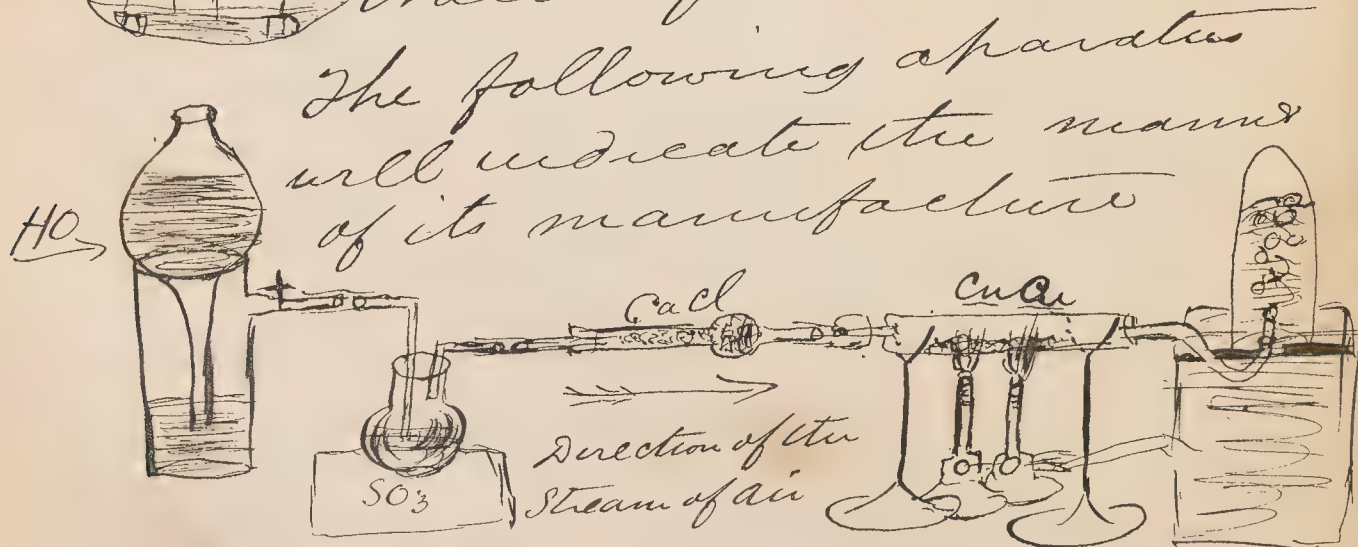 The following aparatus
will indicate the manner
of its manufacture
HO
CaCl
SO3
Direction of the
Stream of air